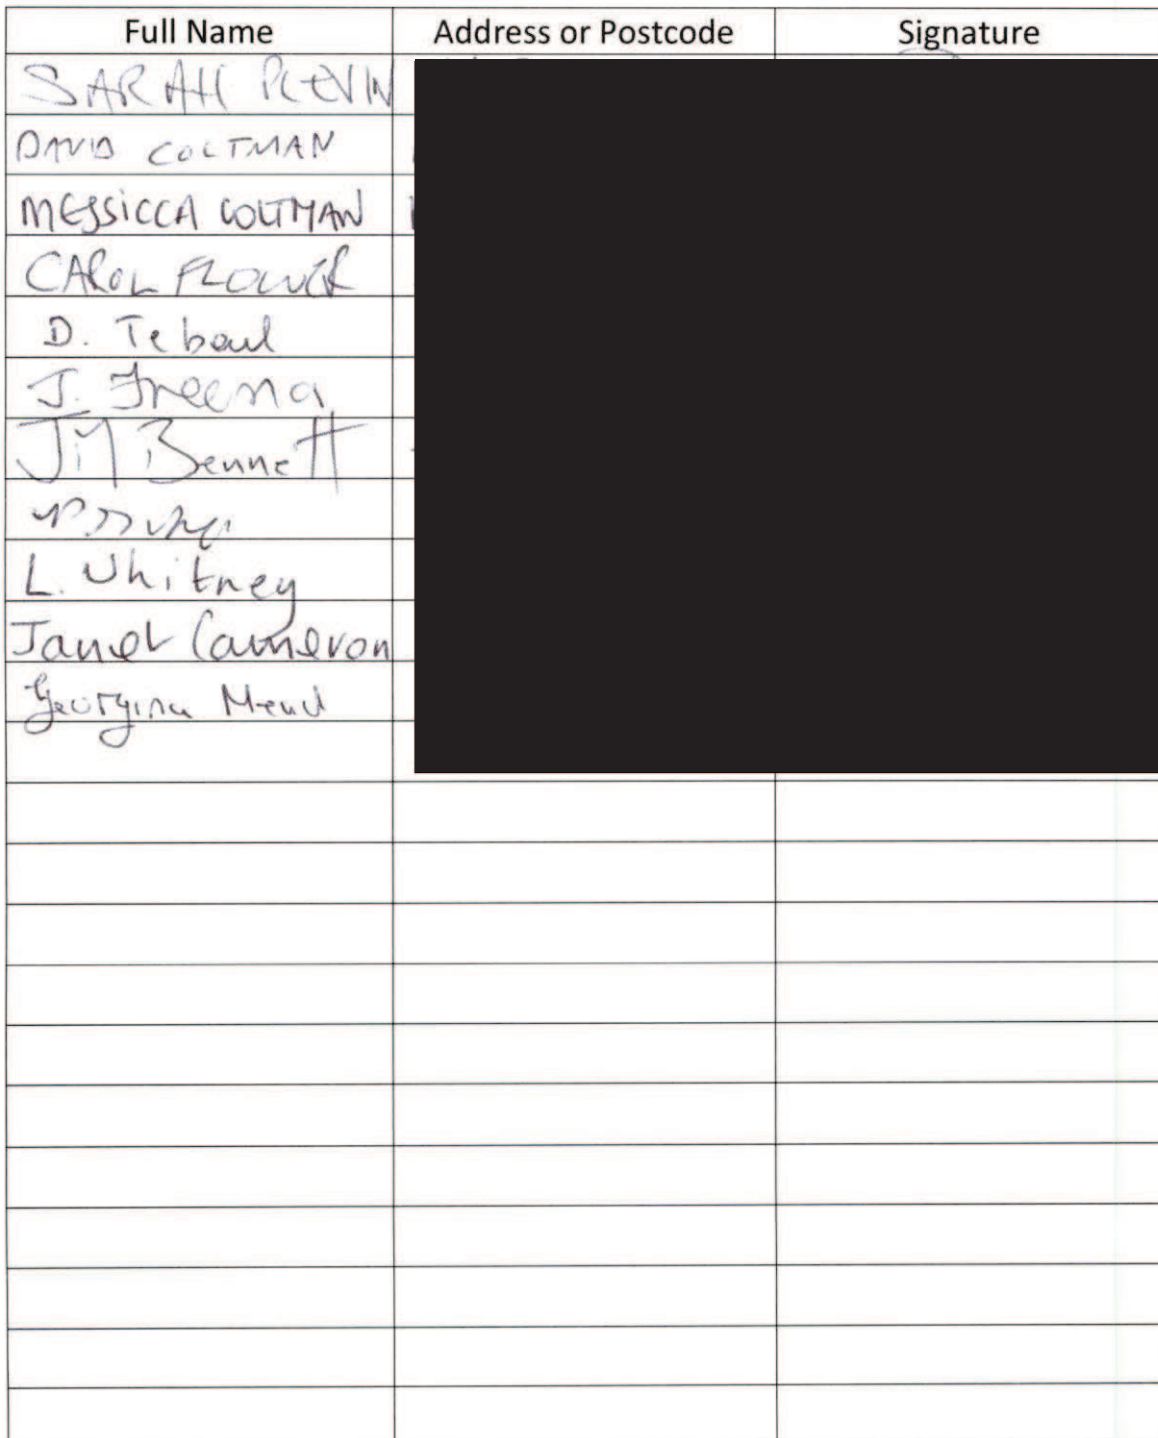 Full Name Address or Postcode Signature
SARAH PLEVIN
DAVID COLTMAN
MESSICCA COLTMAN
CAROL FLOWER
D. Teboul
J. Freema
Jill Bennett
L. Whitney
Janet Cameron
Georgina Mead